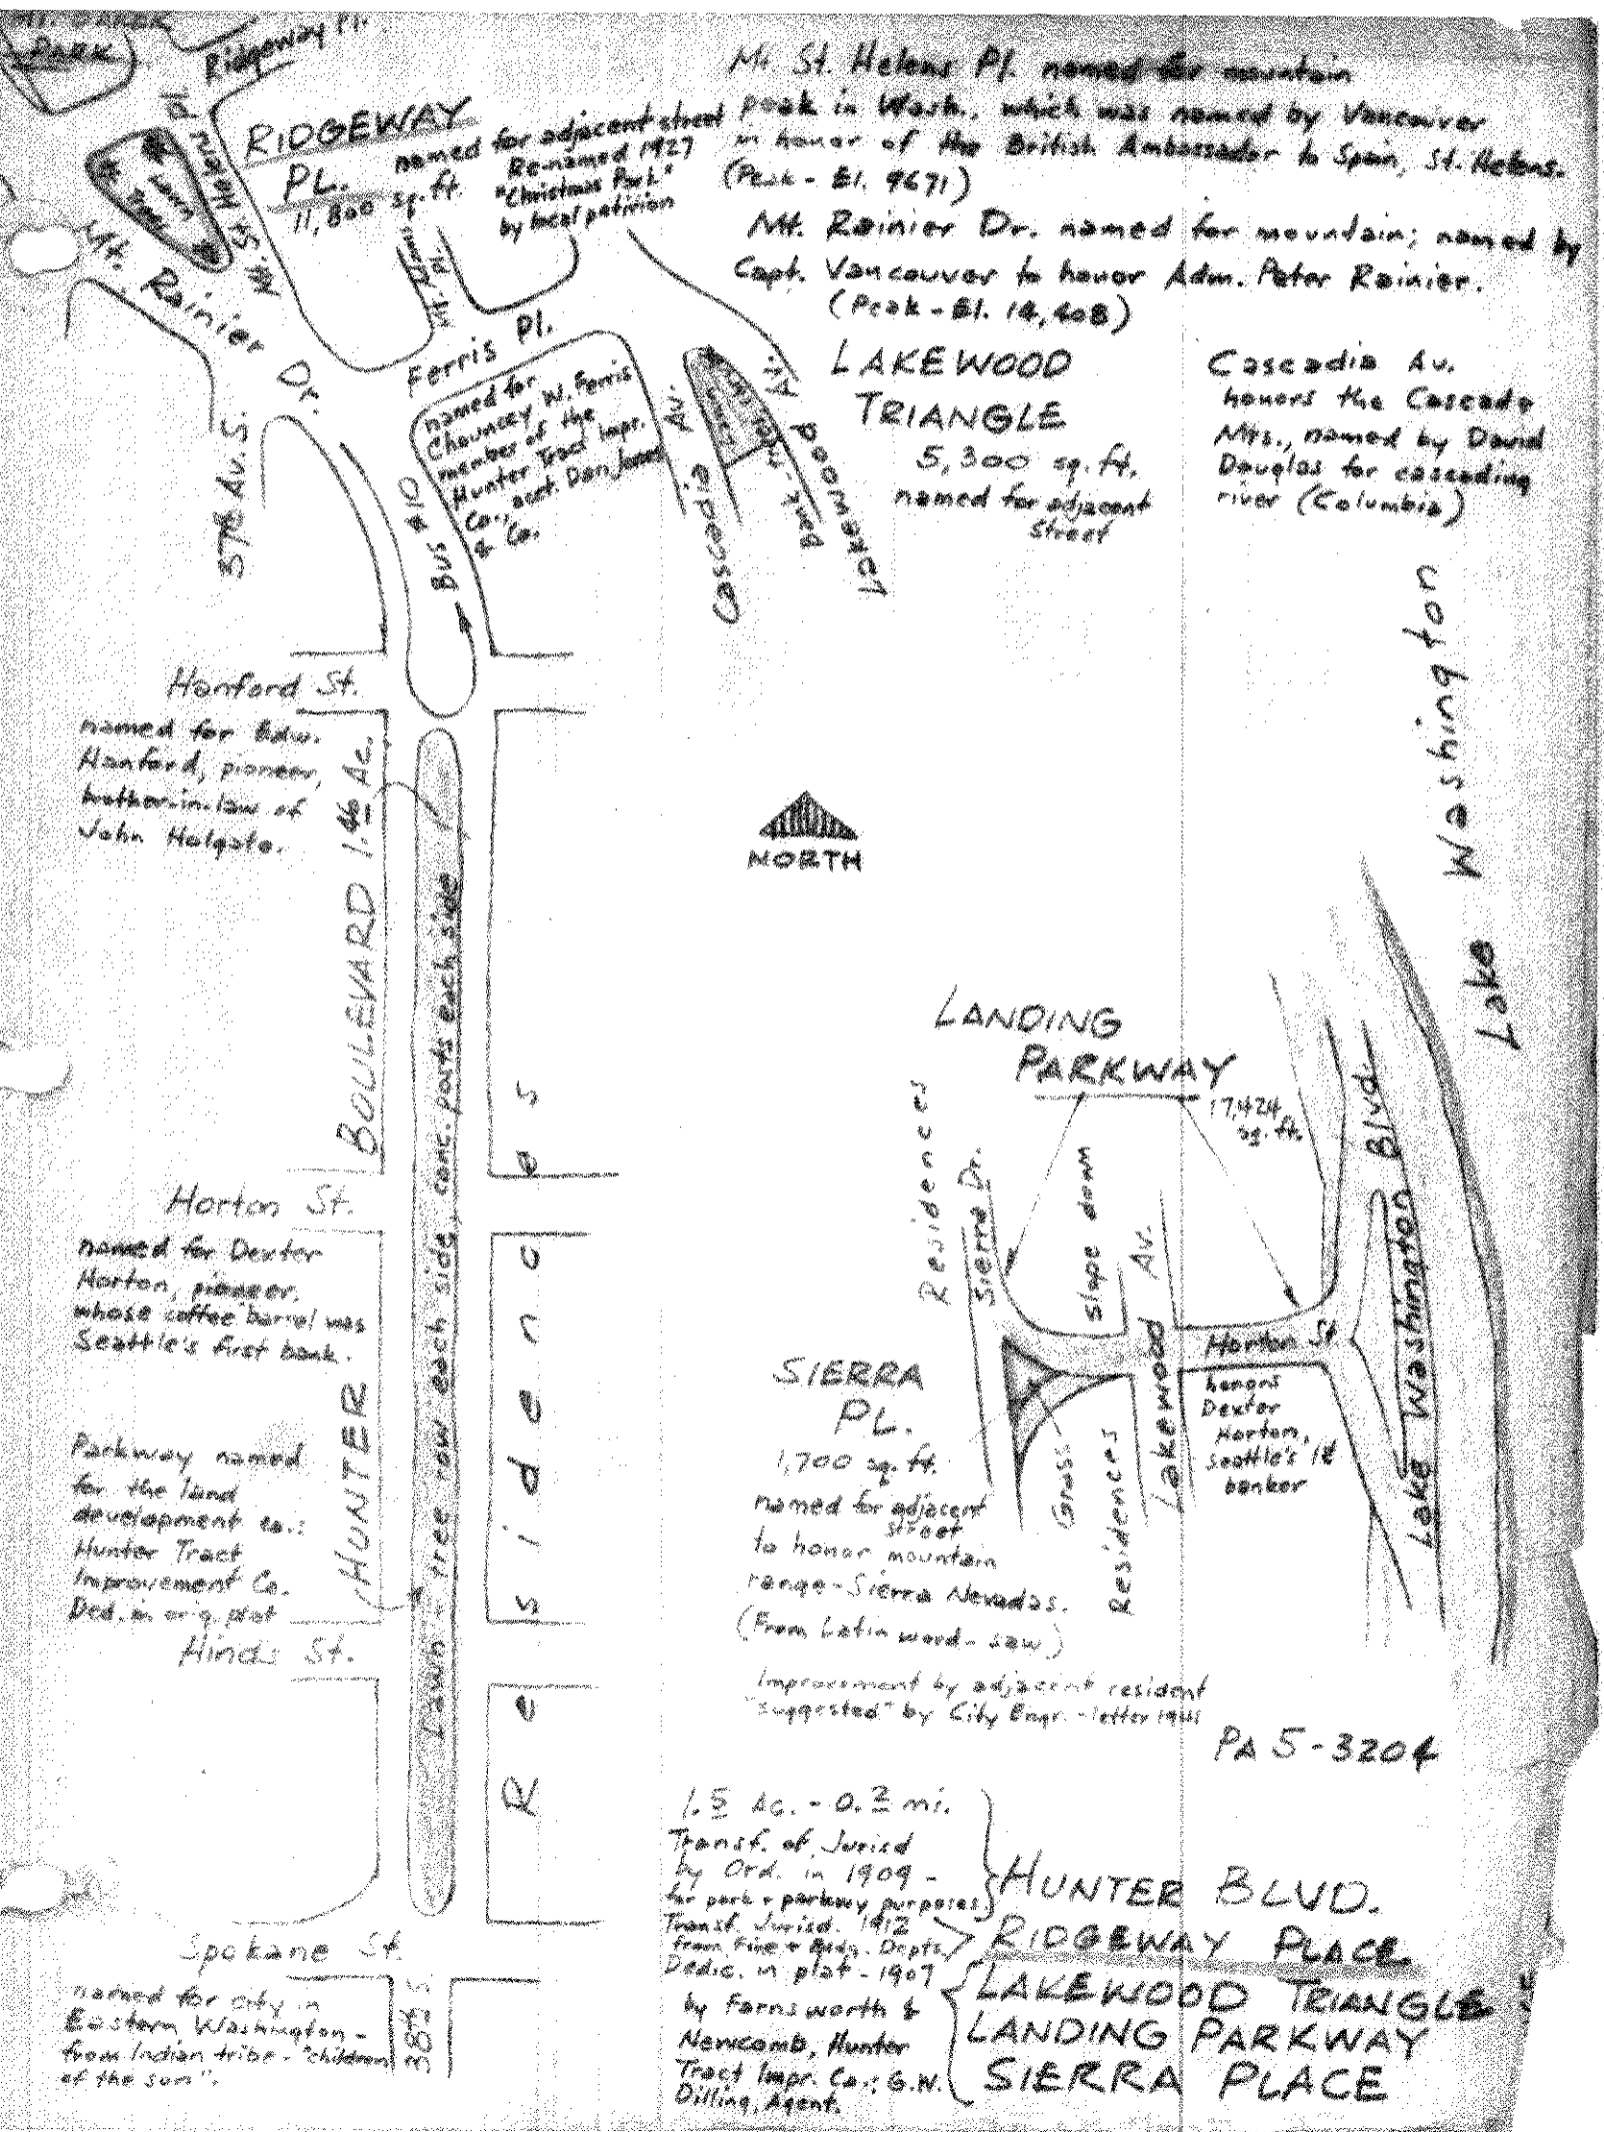 MT. BAKER
PARK
Ridgeway Pl.
Mt. St. Helens Pl. named for mountain
peak in Wash., which was named by Vancouver
in honor of the British Ambassador to Spain, St. Helens.
(Peak - El. 9671)
Mt. Rainier Dr. named for mountain; named by
Capt. Vancouver to honor Adm. Peter Rainier.
(Peak - El. 14,408)
RIDGEWAY
PL.
11,800 sq. ft.
named for adjacent street
Re-named 1927
"Christmas Park"
by local petition
Mt. St. Helens Pl.
lawn
Mt. Rainier Dr.
Mt. Adams Pl.
Ferris Pl.
named for
Chauncey W. Ferris
member of the
Hunter Tract Impr.
Co., acct. Dan Jones
& Co.
LAKEWOOD
TRIANGLE
5,300 sq. ft.
named for adjacent
street
Cascadia Av.
honors the Cascade
Mts., named by David
Douglas for cascading
river (Columbia)
37th Av. S.
Bus #10
Cascadia Av.
Lakewood
Lake Washington
Hanford St.
named for Edw.
Hanford, pioneer,
brother-in-law of
John Holgate.
HUNTER BOULEVARD 1.46 Ac.
Lawn - tree row each side, conc. posts each side
Residences
NORTH
Horton St.
named for Dexter
Horton, pioneer,
whose coffee barrel was
Seattle's first bank.
Parkway named
for the land
development co.:
Hunter Tract
Improvement Co.
Ded. in orig plat
Hinds St.
Spokane St.
named for city in
Eastern Washington -
from Indian tribe - "children
of the sun".
38th S
LANDING
PARKWAY
17,424
sq. ft.
Residences
Sierra Dr.
slope down
Lakewood Av.
Lake Washington Blvd.
Horton St.
honors
Dexter
Horton,
Seattle's 1st
banker
SIERRA
PL.
1,700 sq. ft.
named for adjacent
street
to honor mountain
range - Sierra Nevadas.
(From Latin word - saw)
Grass
Residences
Improvement by adjacent resident
"suggested" by City Engr. - letter
PA 5-3204
1.5 Ac. - 0.2 mi.
Transf. of Jurisd
by Ord. in 1909 -
for park & parkway purposes
HUNTER BLVD.
Transf. Jurisd. 1912
from Fire & Bldg. Depts.
RIDGEWAY PLACE
Dedic. in plat - 1907
by Farnsworth &
Newcomb, Hunter
Tract Impr. Co.; G.W.
Dilling, Agent.
LAKEWOOD TRIANGLE
LANDING PARKWAY
SIERRA PLACE